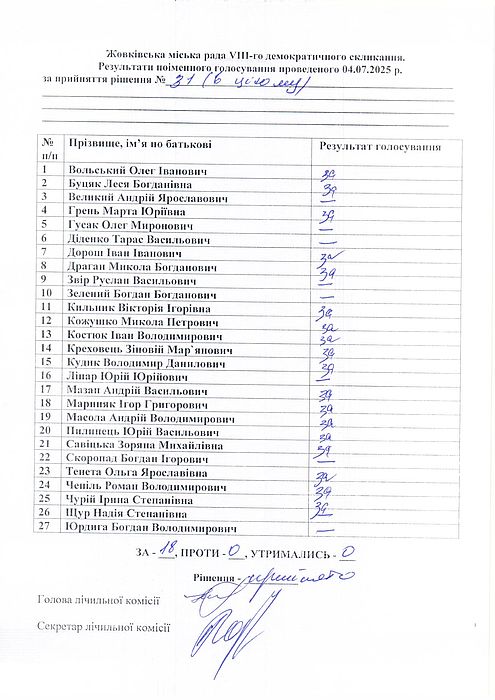 Жовківська міська рада VIII-го демократичного скликання.
Результати поіменного голосування проведеного 04.07.2025 р.
за прийняття рішення № 31 (в цілому)
№ п/п Прізвище, ім’я по батькові Результат голосування
1 Вольський Олег Іванович за
2 Буцяк Леся Богданівна за
3 Великий Андрій Ярославович —
4 Грень Марта Юріївна за
5 Гусак Олег Миронович —
6 Діденко Тарас Васильович —
7 Дорош Іван Іванович за
8 Драган Микола Богданович за
9 Звір Руслан Васильович —
10 Зелений Богдан Богданович —
11 Кильник Вікторія Ігорівна за
12 Кожушко Микола Петрович за
13 Костюк Іван Володимирович за
14 Креховець Зіновій Мар`янович за
15 Кудик Володимир Данилович за
16 Лінар Юрій Юрійович —
17 Мазан Андрій Васильович за
18 Мариняк Ігор Григорович за
19 Масола Андрій Володимирович за
20 Пилипець Юрій Васильович за
21 Савіцька Зоряна Михайлівна за
22 Скоропад Богдан Ігорович —
23 Тенета Ольга Ярославівна за
24 Чепіль Роман Володимирович за
25 Чурій Ірина Степанівна за
26 Щур Надія Степанівна —
27 Юрдига Богдан Володимирович —
ЗА - 18, ПРОТИ - 0, УТРИМАЛИСЬ - 0
Рішення - прийнято
Голова лічильної комісії
Секретар лічильної комісії